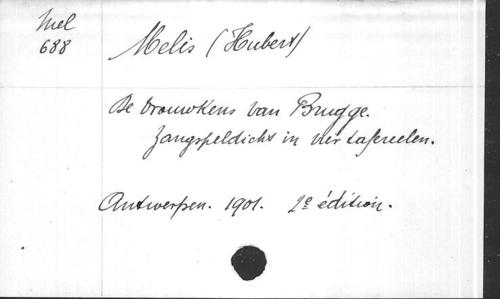 Mel
688
Melis (Hubert)
De Vrouwkens van Brugge.
Zangspeldicht in vier tafereelen.
Antwerpen. 1901. 2e édition.